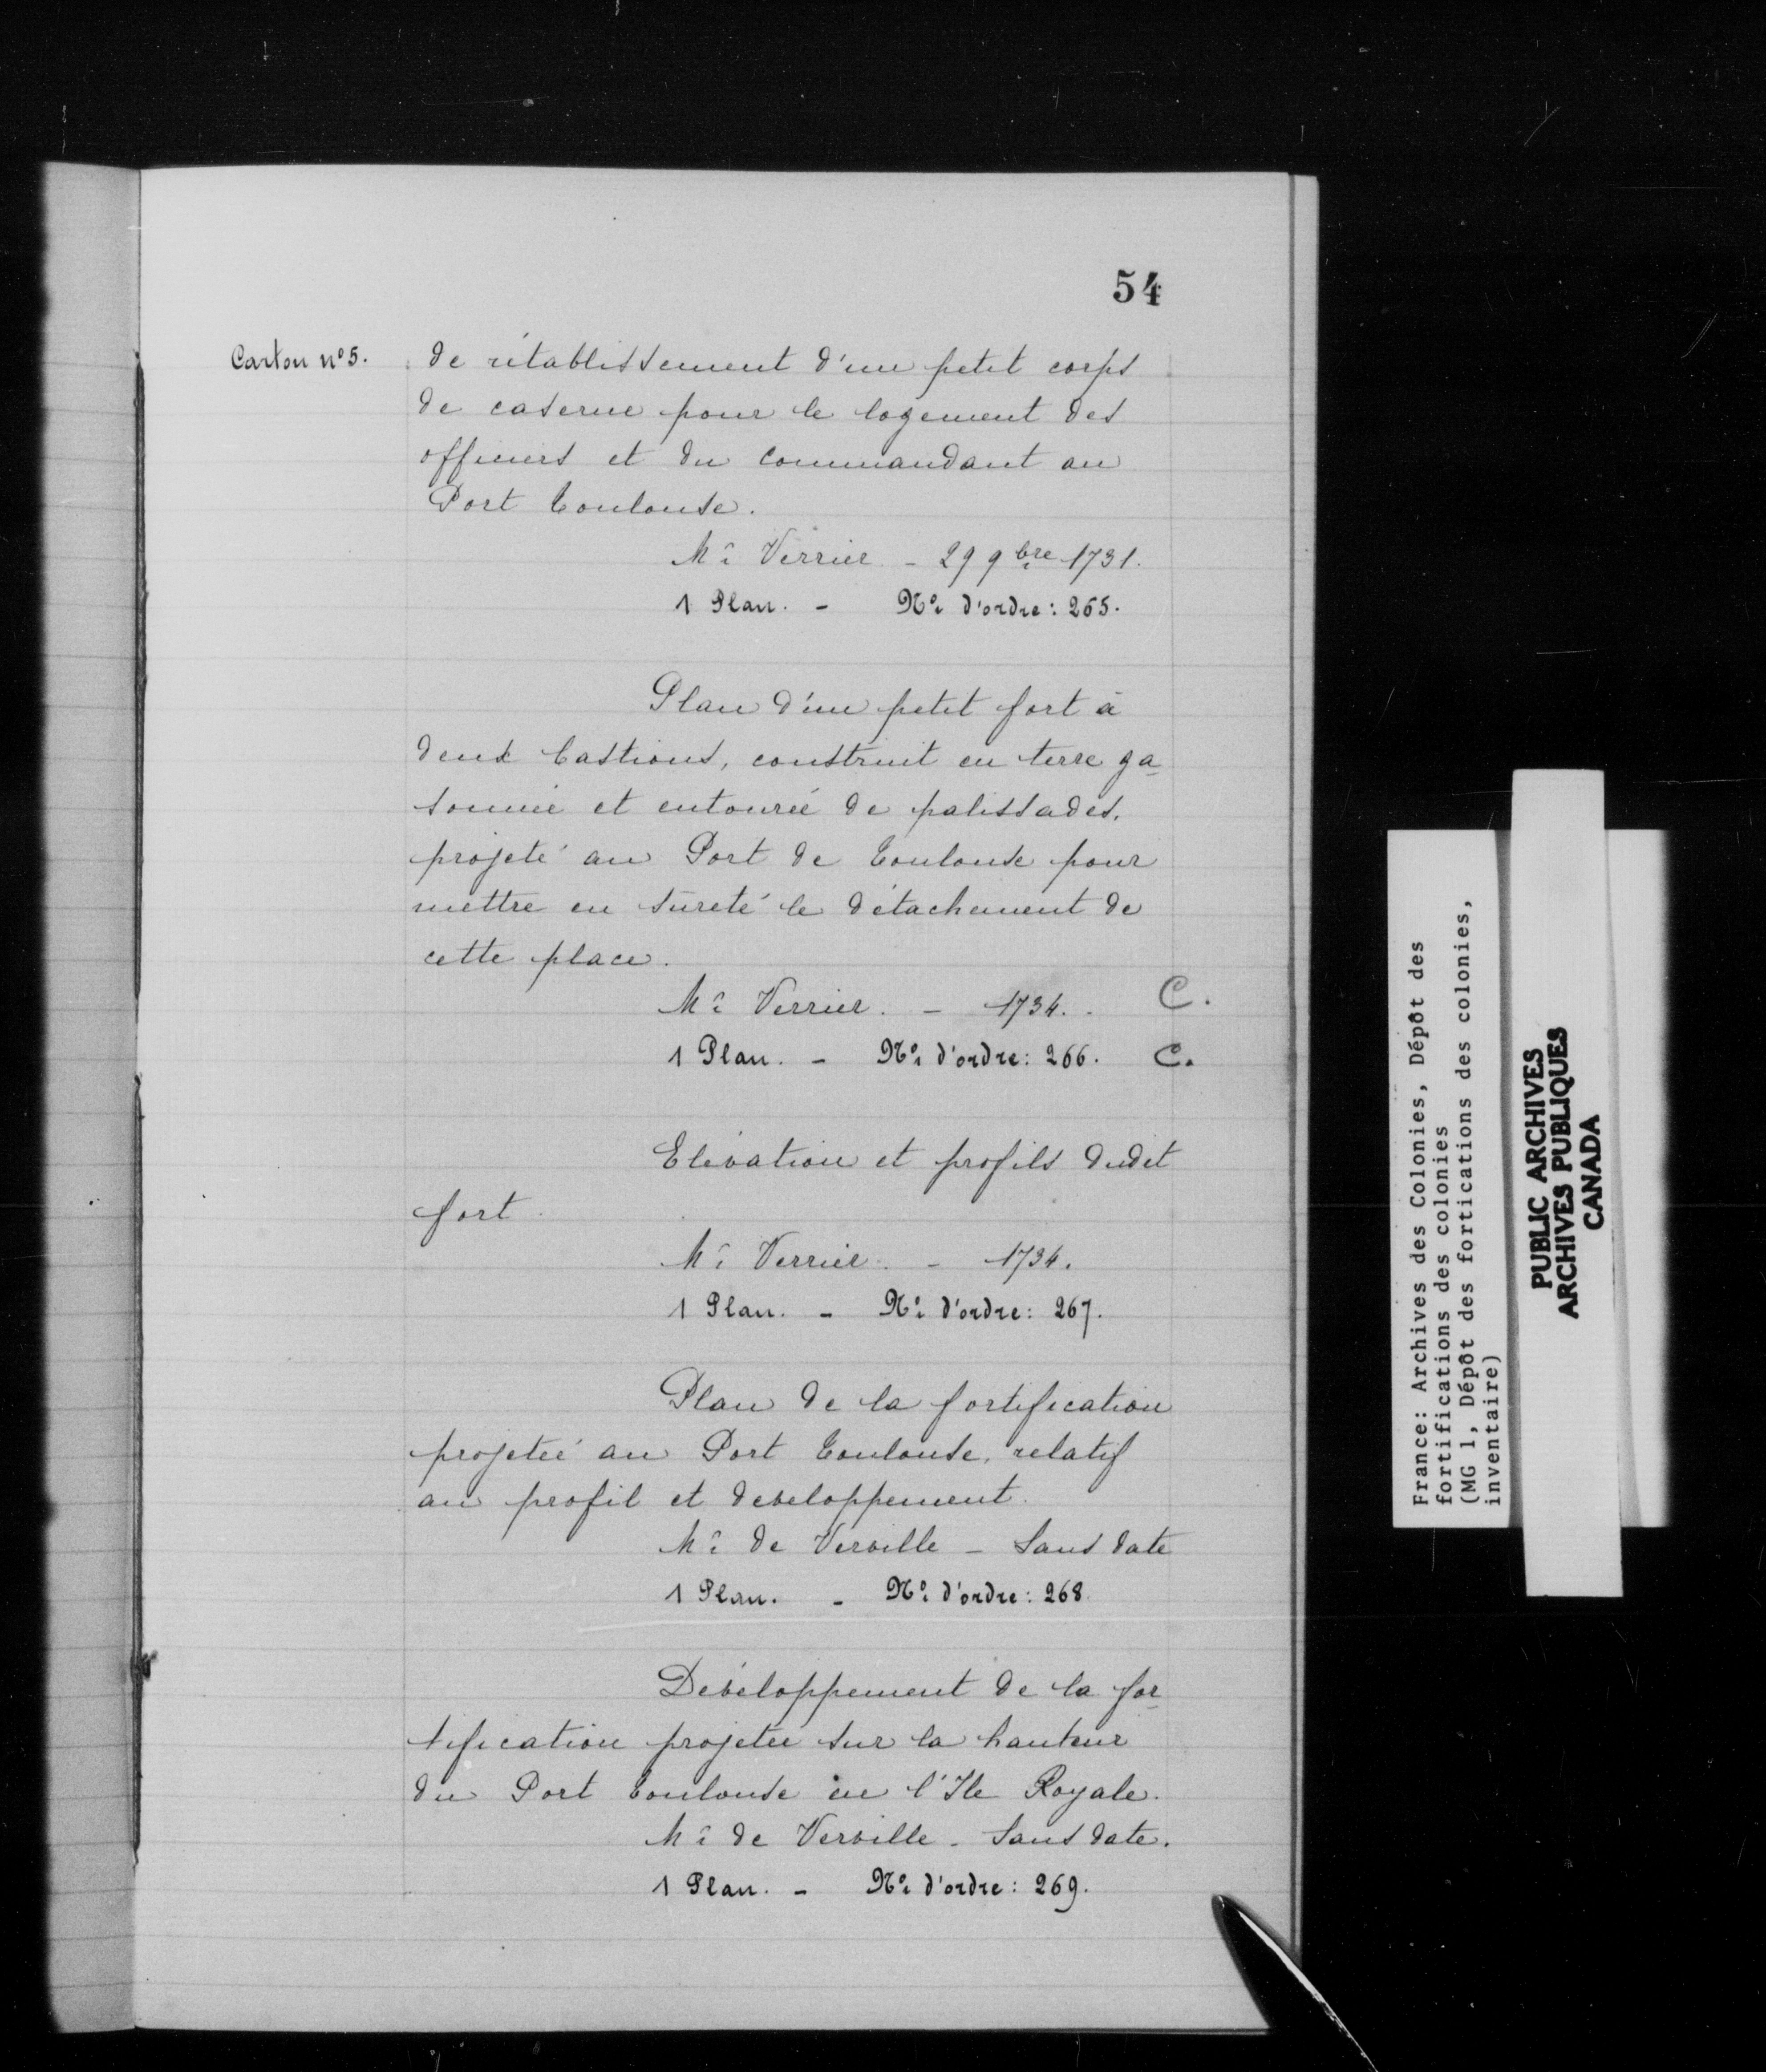 54
Carton n° 5.
de rétablissement d'un petit corps
de caserne pour le logement des
officiers et du commandant au
Port Toulouse.
Mr. Verrier - 29 9bre 1731.
1 Plan. - No. d'ordre : 265.
Plan d'un petit fort à
deux bastions, construit en terre ga-
sonnée et entourée de palissades,
projeté au Port de Toulouse pour
mettre en sûreté le détachement de
cette place.
Mr. Verrier. - 1734. C.
1 Plan. - No. d'ordre : 266. C.
Elévation et profils dudit
fort.
Mr. Verrier. - 1734.
1 Plan. - No. d'ordre : 267.
Plan de la fortification
projetée au Port Toulouse, relatif
au profil et developpement.
Mr. de Verville - Sans date
1 Plan. - No. d'ordre : 268.
Développement de la for-
tification projetée sur la hauteur
du Port Toulouse en l'Ile Royale.
Mr. de Verville - Sans date.
1 Plan. - No. d'ordre : 269.
France: Archives des Colonies, Dépôt des
fortifications des colonies
(MG 1, Dépôt des fortications des colonies,
inventaire)
PUBLIC ARCHIVES
ARCHIVES PUBLIQUES
CANADA